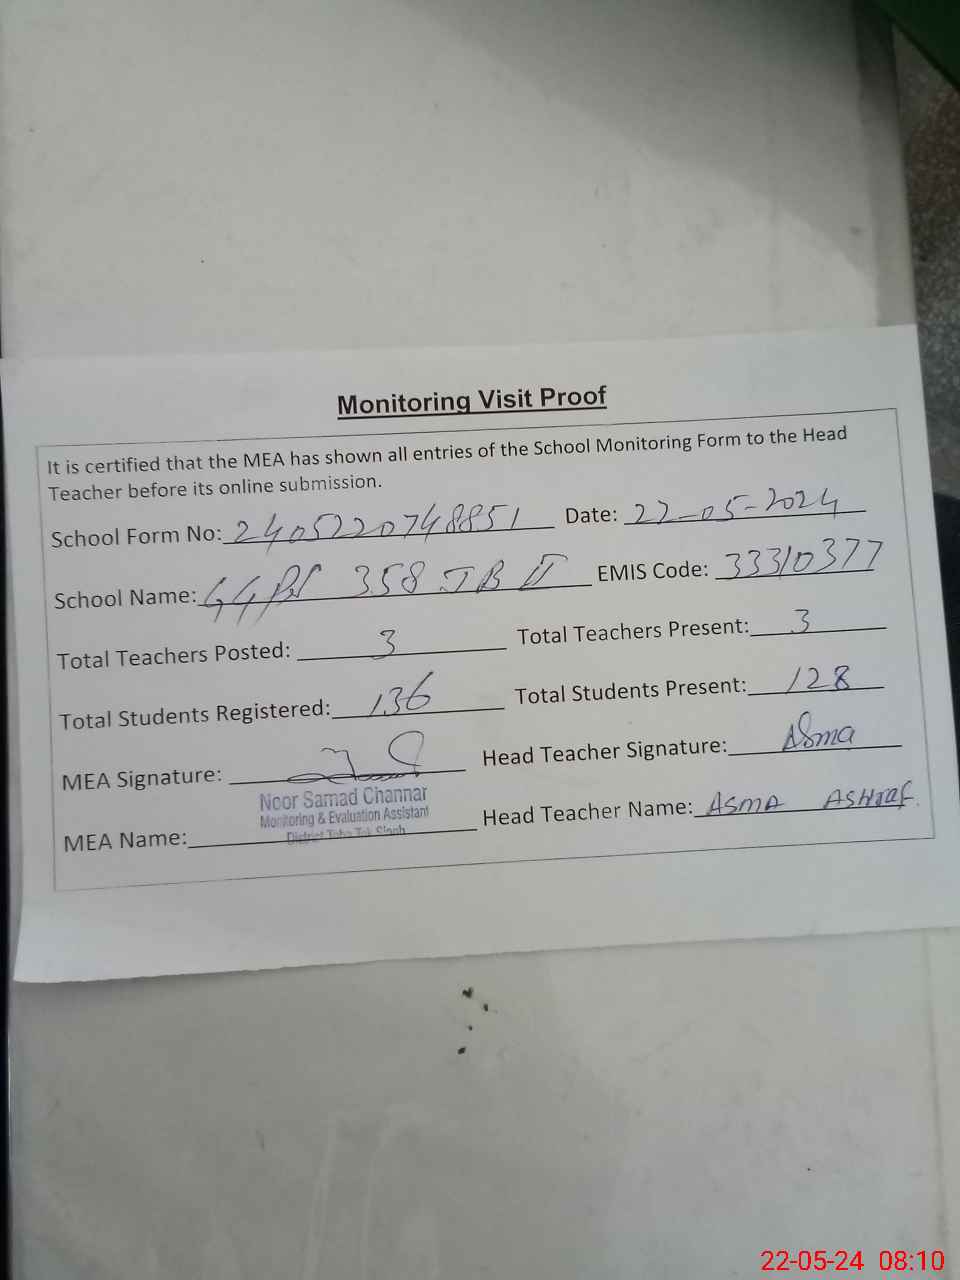 Monitoring Visit Proof
It is certified that the MEA has shown all entries of the School Monitoring Form to the Head
Teacher before its online submission.
School Form No: 2405220748851 Date: 22-05-2024
School Name: GGPS 358 JB II EMIS Code: 33310377
Total Teachers Posted: 3 Total Teachers Present: 3
Total Students Registered: 136 Total Students Present: 128
MEA Signature: Head Teacher Signature: Asma
Noor Samad Channar
Monitoring & Evaluation Assistant
District Toba Tek Singh
MEA Name: Head Teacher Name: ASMA ASHraf.
22-05-24 08:10